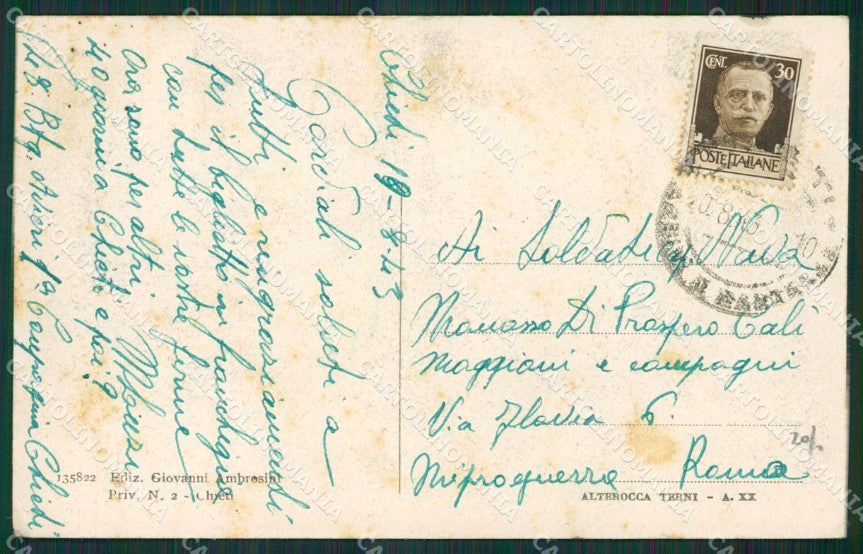 Chieti 19-8-43
Cordiali saluti a
tutti e ringraziamenti
per il biglietto in franchigia
con tutte le vostre firme
Ora sono per altri
40 giorni a Chieti e poi?
18 Btg. Avieri 1ª Compagnia Chieti
CENT. 30
POSTE ITALIANE
Ai Soldati Nava
Di Prospero Calì
Maggioni e compagni
Via Flavia 6.
Roma
135822 Ediz. Giovanni Ambrosini
Priv. N. 2 - Chieti
ALTEROCCA TERNI - A. XX
CARTOLINOMANIA